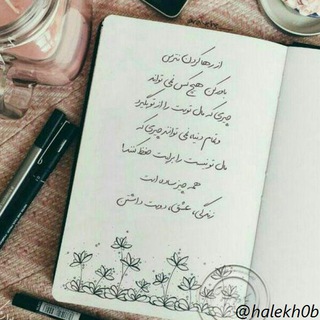 از رها کردن نترس
باور کن هیچ کس نمی تواند
چیزی که مال توست را از تو بگیرد
و تمام دنیا نمی توانند چیزی که
مال تو نیست را برایت حفظ کنند!
همه چیز ساده است
زندگی، عشق، دوست داشتن
@halekh0b